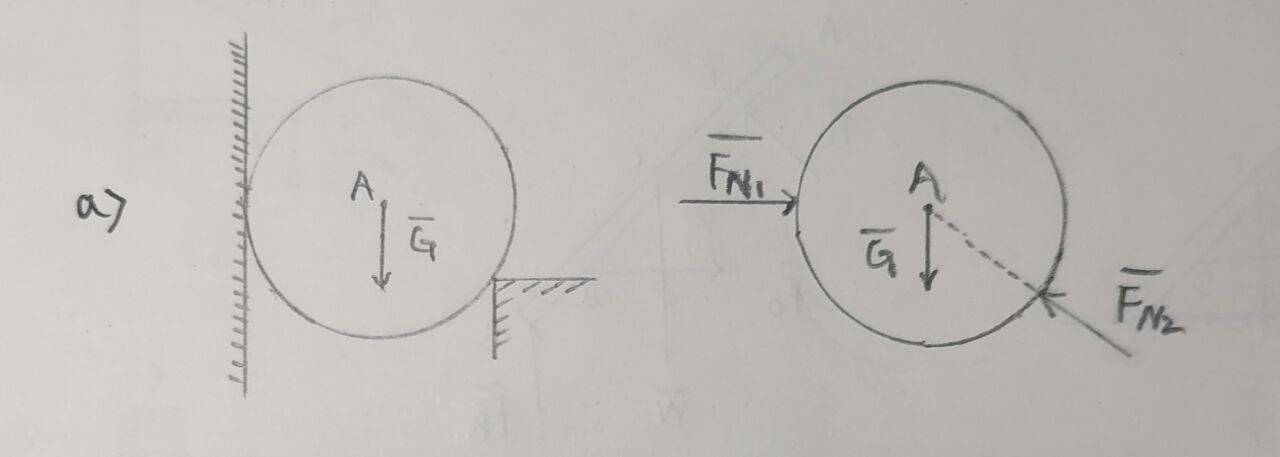 a)
A
G
F_N1
A
G
F_N2